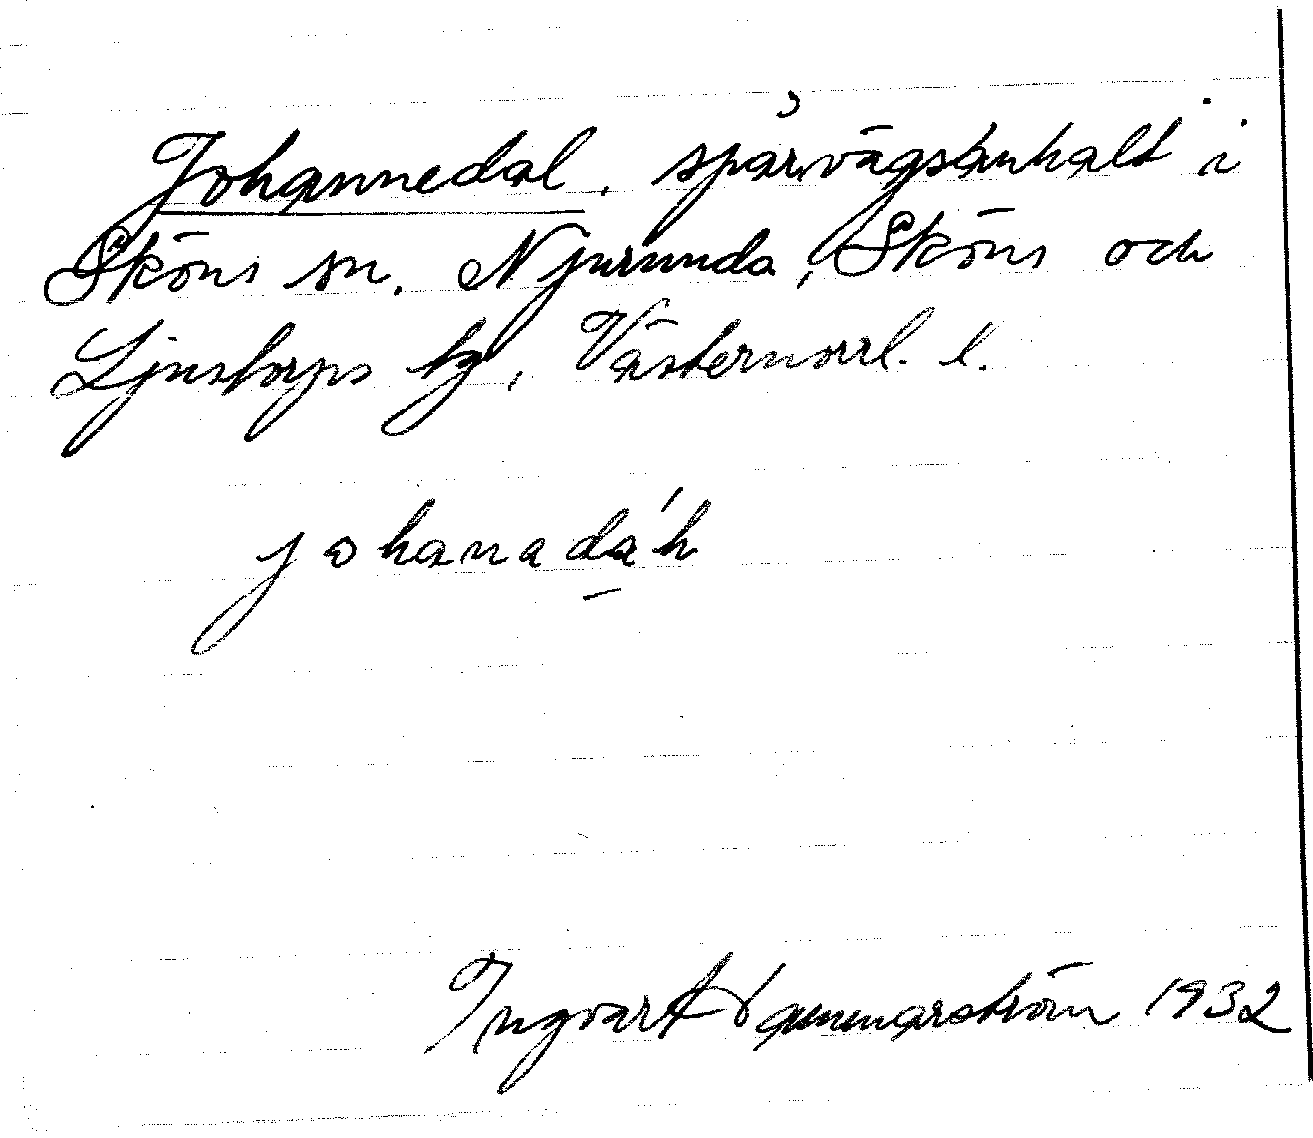 Johannedal, spårvägsanhalt i
Sköns sn. Njurunda, Sköns och
Ljustorps tg, Västernorrl. l.
johanadáh
Ingvar Hammarström 1932